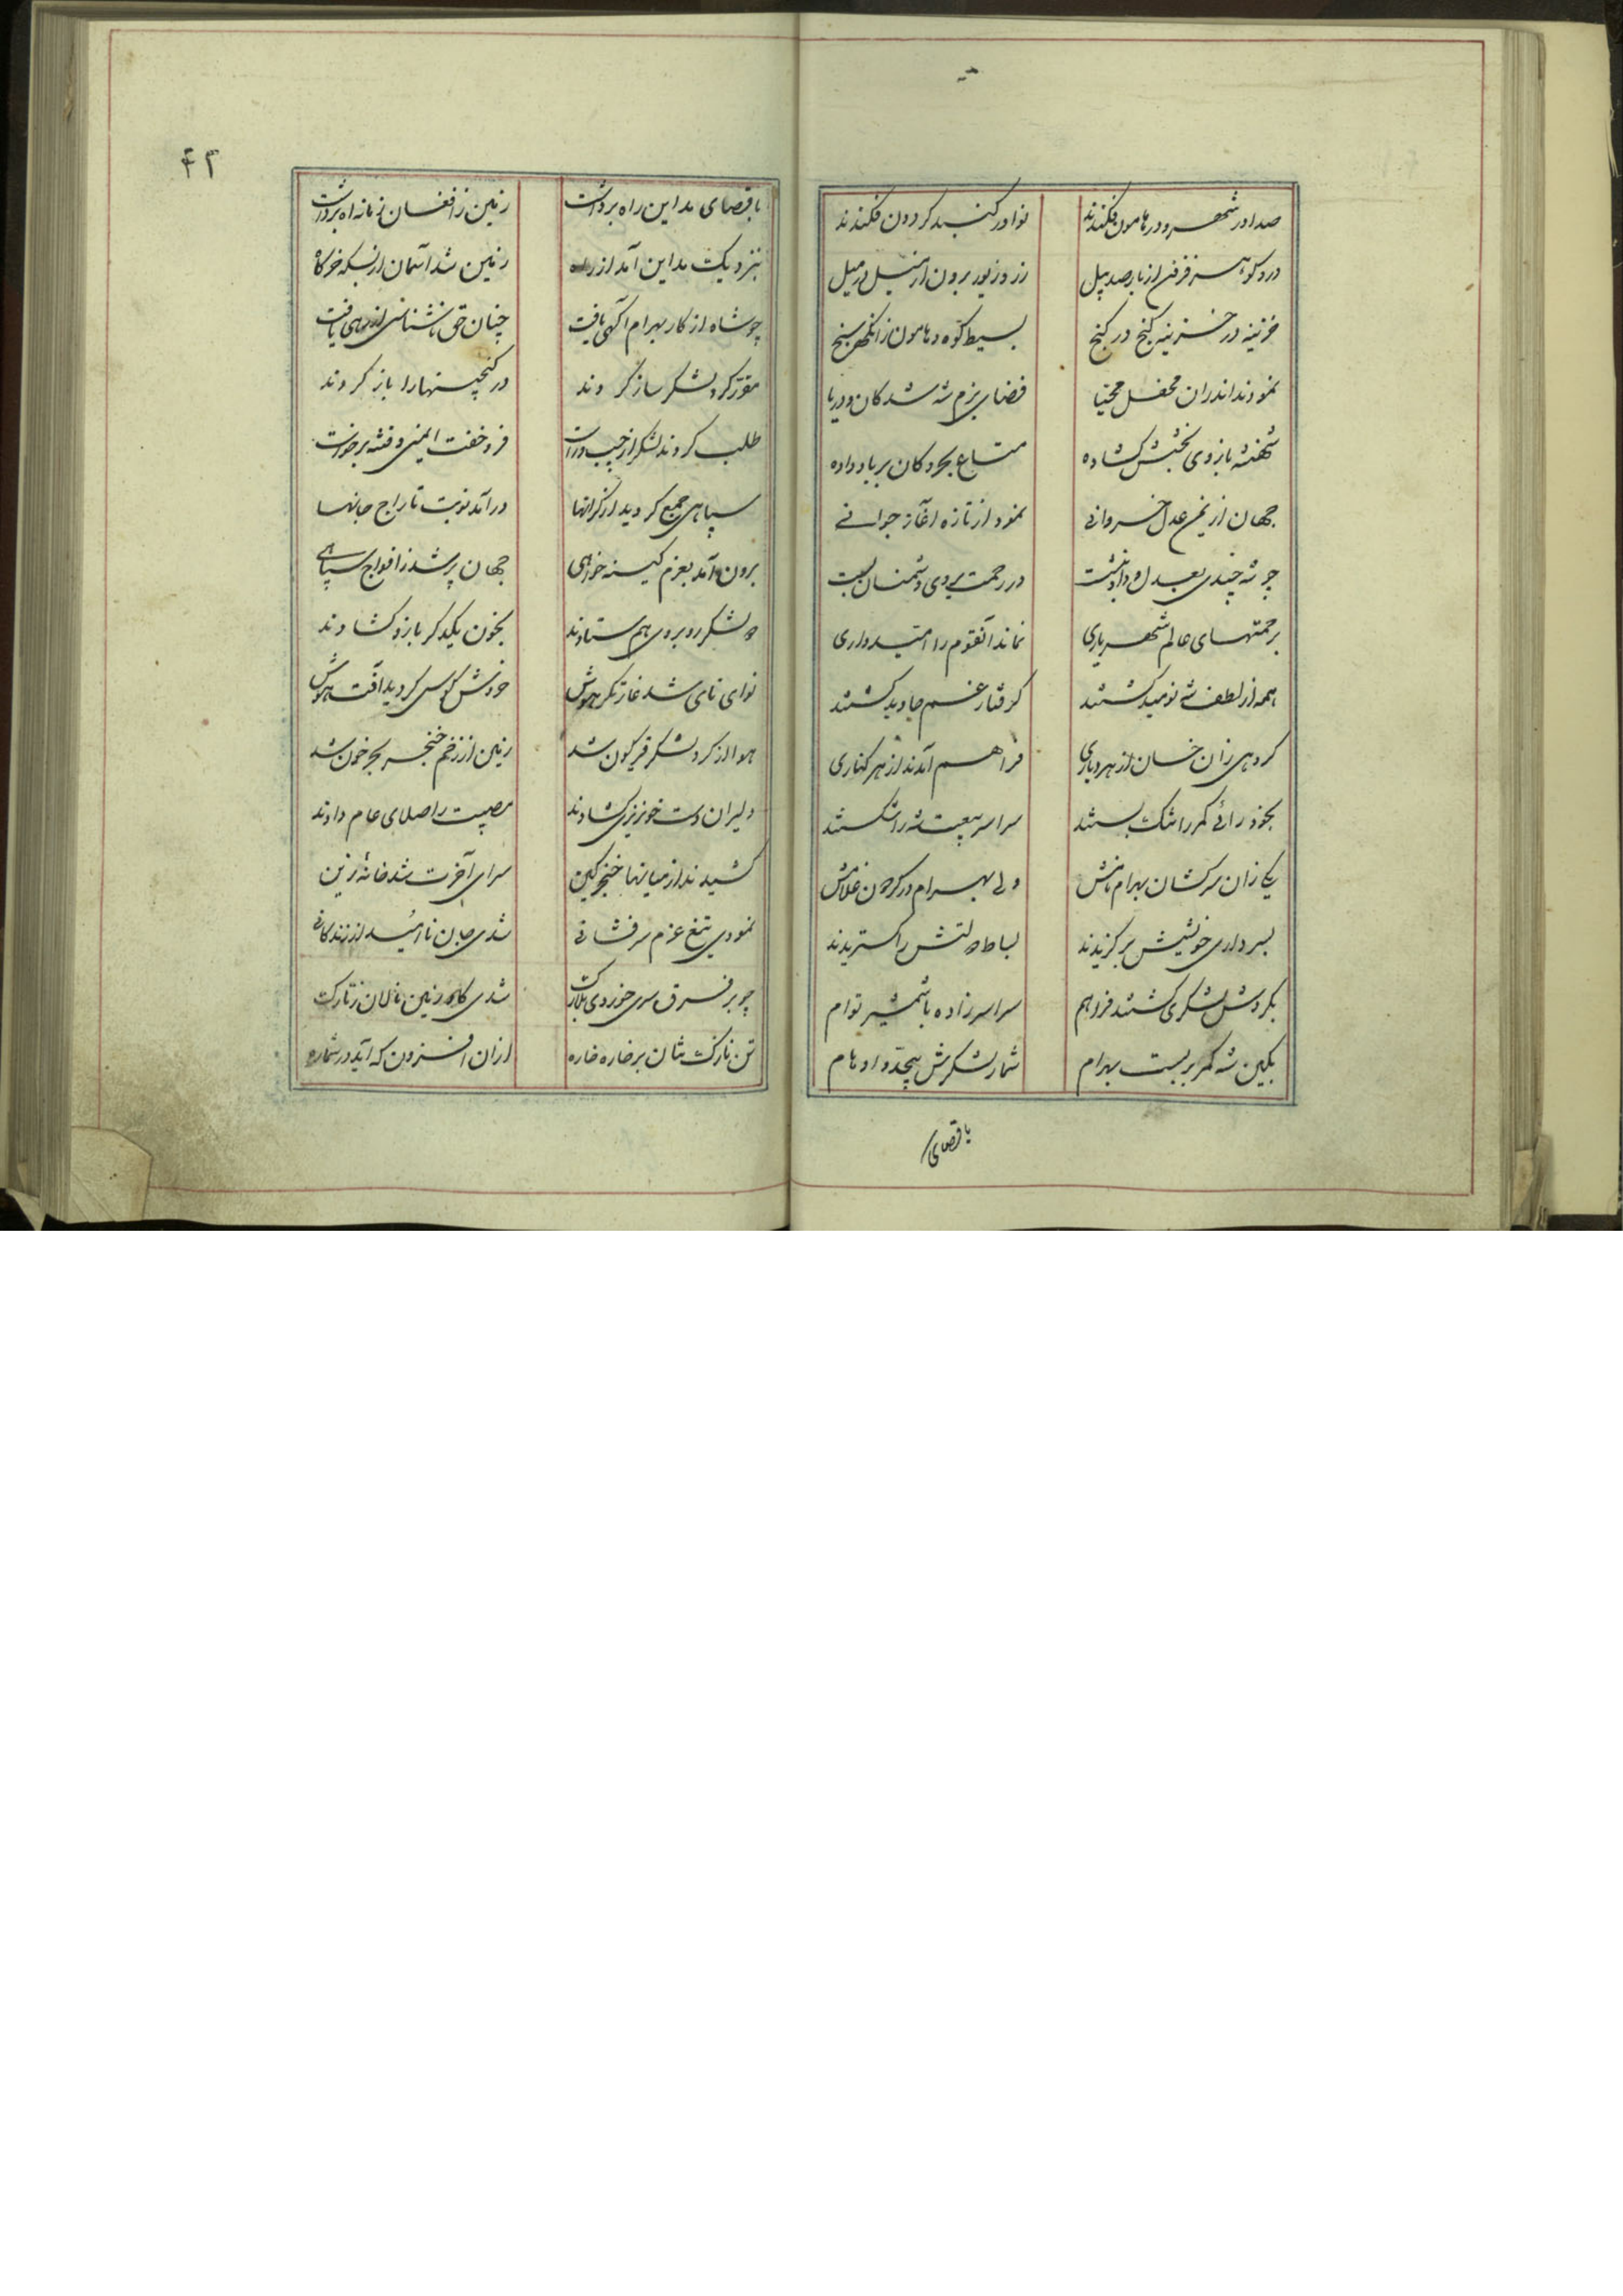 صدا در شهر و در هامون فکندند نوا در گنبد گردون فکندند
در و گوهر فزون از بار صد پیل زر و زیور برون از میل در میل
خزینه در خزینه گنج در گنج بسیط کوه و هامون زان گهر سنج
نمودند اندران محفل مهیا فضای بزم شه شد کان و دریا
شهنشه بازوی بخشش گشاده متاع بحر و کان بر باد داده
جهان از یمن عدل خسروانی نمود از تازه آغاز جوانی
چو شه چندی بعدل و داد بنشست در رحمت بروی دشمنان بست
برحمتهای عالم شهریاری نماند آنقوم را امیدواری
همه از لطف شه نومید گشتند گرفتار غم جاوید گشتند
گروهی زان خسان از هر دیاری فراهم آمدند از هر کناری
بخود رائی کمر را تنگ بستند سراسر بیعت شه را شکستند
یکی زان سرکشان بهرام نامش ولی بهرام در گردون غلامش
بسرداری خویشش برگزیدند بساط دولتش را گستریدند
بگردش لشکری گشتند فراهم سراسر زاده با شمشیر توام
بکین شه کمر بربست بهرام شمار لشکرش بیحد و اوهام
باقصای
۴۲
باقصای مداین راه برداشت زمین ز افغان زمانه آه برداشت
بنزدیک مداین آمد از راه زمین شد آسمان از بسکه خرگاه
چو شاه از کار بهرام آگهی یافت چنان حق ناشناسی از رهی یافت
مقرر کرد لشکر ساز کردند در گنجینها را باز کردند
طلب کردند لشکر از چپ و راست فرو خفت ایمنی و فتنه برخاست
سپاهی جمع گردید از کرانها درآمد نوبت تاراج جانها
برون آمد بعزم کینه خواهی جهان پر شد ز افواج سپاهی
دو لشکر روبروی هم ستادند بخون یکدگر بازو گشادند
نوای نای شد غارتگر هوش خروش کوس گردید آفت هوش
هوا از گرد لشکر قیرگون شد زمین از زخم خنجر بحر خون شد
دلیران دست خونریزی گشادند مصیبت را صلای عام دادند
کشیدند از میانها خنجر کین سرای آخرت شد خانهٔ زین
نمودی تیغ عزم سرفشانی شدی جان ناامید از زندگانی
چو بر فرق سری خوردی بلارک شدی گاو زمین نالان ز تارک
تن نازک تنان بر خاره خاره از آن افزون که آید در شماره